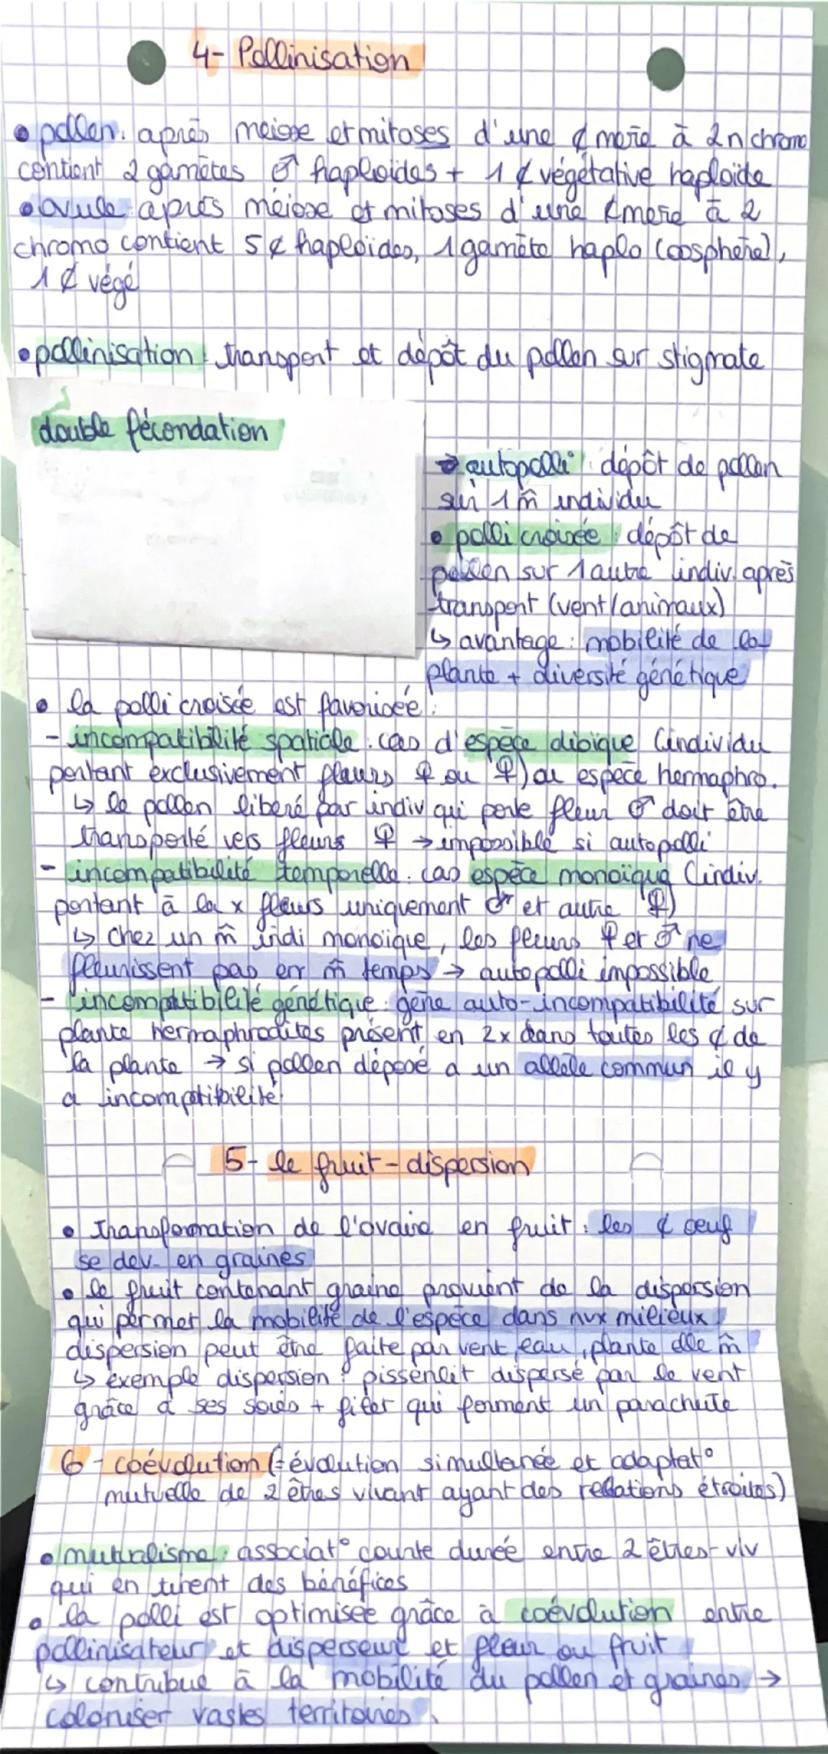 4- Pollinisation
• pollen : après meiose et mitoses d'une ¢ mère à 2n chromo
contient 2 gamètes ♂ haploïdes + 1 ¢ végétative haploïde
• ovule après méiose et mitoses d'une ¢ mere à 2
chromo contient 5 ¢ haploïdes, 1 gamète haplo (oosphère),
1 ¢ végé
• pollinisation : transport et dépôt du pollen sur stigmate
double fécondation
→ autopolli° : dépôt de pollen
sur 1 m̂ individu
• polli croisée : dépôt de
pollen sur 1 autre indiv. après
transport (vent/animaux)
↳ avantage : mobilité de la
plante + diversité génétique
• la polli croisée est favorisée :
- incompatibilité spatiale : cas d'espèce dioïque (individu
portant exclusivement fleurs ♀ ou ♀) ou espèce hermaphro.
↳ le pollen libéré par indiv qui porte fleur ♂ doit être
transporté vers fleurs ♀ → impossible si autopolli°
- incompatibilité temporelle : cas espèce monoïque (indiv.
portant à la x fleurs uniquement ♂ et autre ♀)
↳ chez un m̂ indi monoïque, les fleurs ♀ et ♂ ne
fleurissent pas en m̂ temps → autopolli impossible
- l'incompatibilité génétique : gène auto-incompatibilité sur
plante hermaphrodites présent en 2x dans toutes les ¢ de
la plante → si pollen déposé a un allèle commun il y
a incompatibilité
5- le fruit - dispersion
• transformation de l'ovaire en fruit : les ¢ oeuf
se dev. en graines
• le fruit contenant graine provient de la dispersion
qui permet la mobilité de l'espèce dans nvx milieux
dispersion peut être faite par vent, eau, plante elle m̂
↳ exemple dispersion : pissenlit dispersé par le vent
grâce à ses soies + filet qui forment un parachute
6- coévolution (= évolution simultanée et adaptat°
mutuelle de 2 êtres vivant ayant des relations étroites)
• mutualisme : associat° courte durée entre 2 êtres-viv
qui en tirent des bénéfices
• la polli est optimisée grâce à coévolution entre
pollinisateur et disperseur et fleur ou fruit
↳ contribue à la mobilité du pollen et graines →
coloniser vastes territoires.